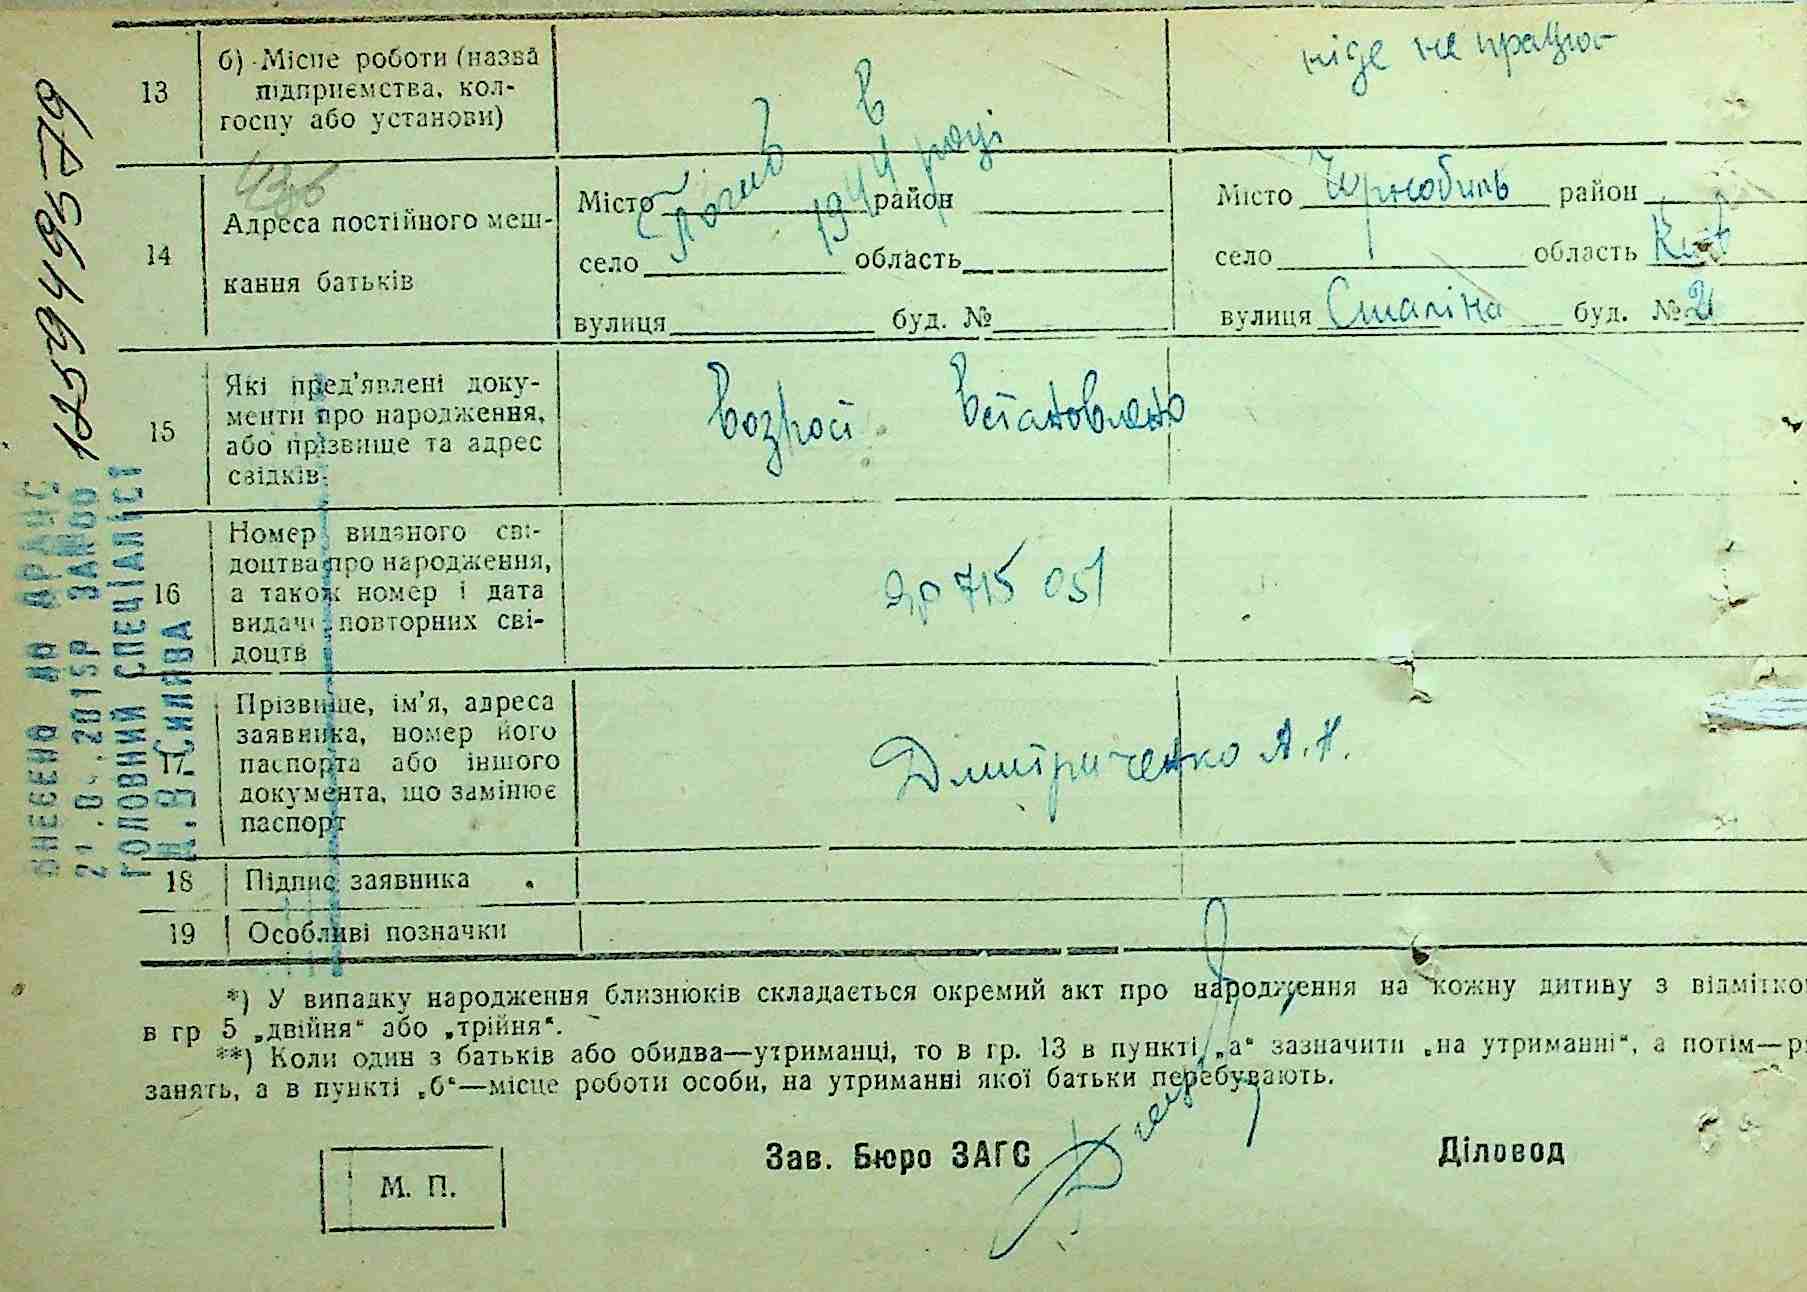 13
б) Місце роботи (назва
підприємства, кол-
госпу або установи)
ніде не працює
14
Адреса постійного меш-
кання батьків
Погиб в
1944 році
Місто район
село область
вулиця буд. №
Місто Чорнобиль район
село область Київ
вулиця Сталіна буд. № 21
15
Які пред'явлені доку-
менти про народження,
або прізвище та адрес
свідків
Возрост встановлено
16
Номер виданого сві-
доцтва про народження,
а також номер і дата
видачі повторних сві-
доцтв
715 051
17
Прізвище, ім'я, адреса
заявника, номер його
паспорта або іншого
документа, що замінює
паспорт
Дмитриченко А. Н.
18 Підпис заявника
19 Особливі позначки
*) У випадку народження близнюків складається окремий акт про народження на кожну дитину з відміткою
в гр 5 „двійня“ або „трійня“.
**) Коли один з батьків або обидва—утриманці, то в гр. 13 в пункті „а“ зазначити „на утриманні“, а потім—р
занять, а в пункті „б“—місце роботи особи, на утриманні якої батьки перебувають.
М. П.
Зав. Бюро ЗАГС
Діловод
ВНЕСЕНО ДО ДРАЦС
2015Р
ГОЛОВНИЙ СПЕЦІАЛІСТ
Н.В.Силява